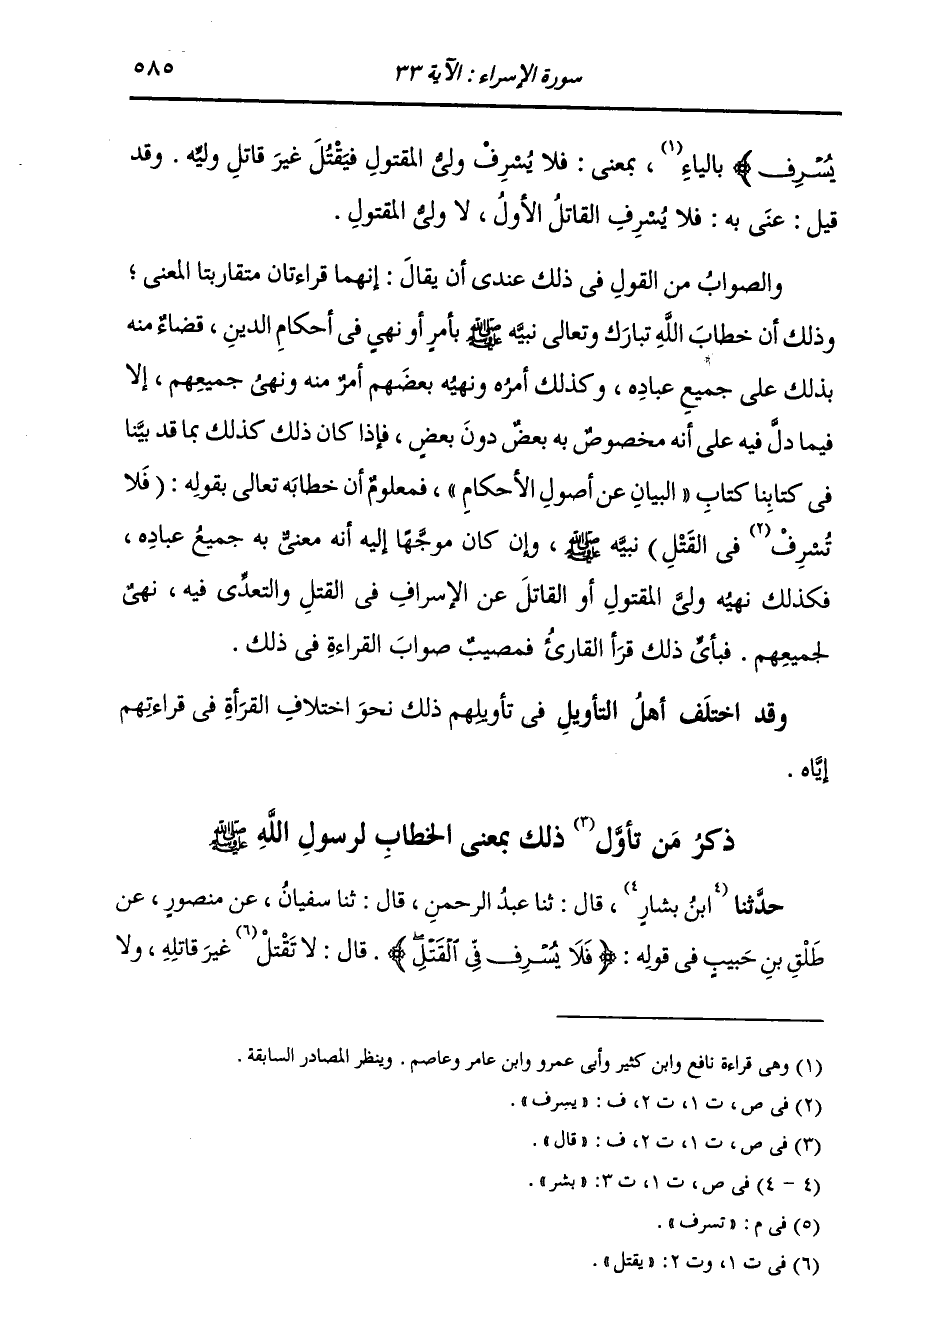 سورة الإسراء : الآية ٣٣
٥٨٥
يُسْرِف ﴾ بالياءِ(١) ، بمعنى : فلا يُسْرِفْ ولىُّ المقتولِ فيَقْتُلَ غيرَ قاتلِ وليِّه . وقد
قيل : عنَى به : فلا يُسْرِفِ القاتلُ الأولُ ، لا ولىُّ المقتولِ .
والصوابُ من القولِ فى ذلك عندى أن يقالَ : إنهما قراءتان متقاربتا المعنى ؛
وذلك أن خطابَ اللَّهِ تبارَك وتعالى نبيَّه ﷺ بأمرٍ أو نهىٍ فى أحكامِ الدينِ ، قضاءٌ منه
بذلك على جميعِ عبادِه ، وكذلك أمرُه ونهيُه بعضَهم أمرٌ منه ونهىُ جميعِهم ، إلا
فيما دلَّ فيه على أنه مخصوصٌ به بعضٌ دونَ بعضٍ ، فإذا كان ذلك كذلك بما قد بيَّنا
فى كتابِنا كتابِ « البيان عن أصولِ الأحكامِ » ، فمعلومٌ أن خطابَه تعالى بقولِه : ( فَلا
تُسْرِفْ(٢) فى القَتْلِ ) نبيَّه ﷺ ، وإن كان موجَّهًا إليه أنه معنىٌّ به جميعُ عبادِه ،
فكذلك نهيُه ولىَّ المقتولِ أو القاتلَ عن الإسرافِ فى القتلِ والتعدِّى فيه ، نهىٌ
لجميعِهم . فبأىِّ ذلك قرَأ القارئُ فمصيبٌ صوابَ القراءةِ فى ذلك .
وقد اختلَف أهلُ التأويلِ فى تأويلِهم ذلك نحوَ اختلافِ القرَأةِ فى قراءتِهم
إيَّاه .
ذكرُ مَن تأوَّل(٣) ذلك بمعنى الخطابِ لرسولِ اللَّهِ ﷺ
حدَّثنا (٤ابنُ بشارٍ٤) ، قال : ثنا عبدُ الرحمنِ ، قال : ثنا سفيانُ ، عن منصورٍ ، عن
طَلْقِ بنِ حَبيبٍ فى قولِه : ﴿ فَلَا يُسْرِف فِّى ٱلْقَتْلِ ﴾ . قال : لا تَقْتلْ(٦) غيرَ قاتلِهِ ، ولا
(١) وهى قراءة نافع وابن كثير وأبى عمرو وابن عامر وعاصم . وينظر المصادر السابقة .
(٢) فى ص ، ت ١، ت ٢، ف : «يسرف» .
(٣) فى ص ، ت ١، ت ٢، ف : «قال» .
(٤ - ٤) فى ص ، ت ١، ت ٣: «بشر» .
(٥) فى م : «تسرف» .
(٦) فى ت ١، وت ٢: «يقتل» .